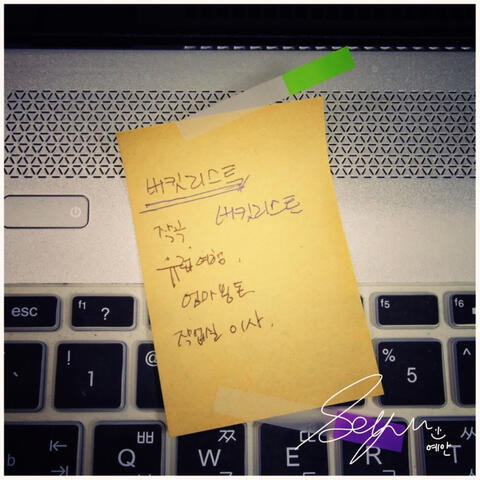 버킷리스트
작곡 버킷리스트
유럽여행.
엄마용돈
작업실 이사.
esc
f1 ?
!
1
%
5
Q ㅃ
W ㅉ
E ㄸ
R
T
예안